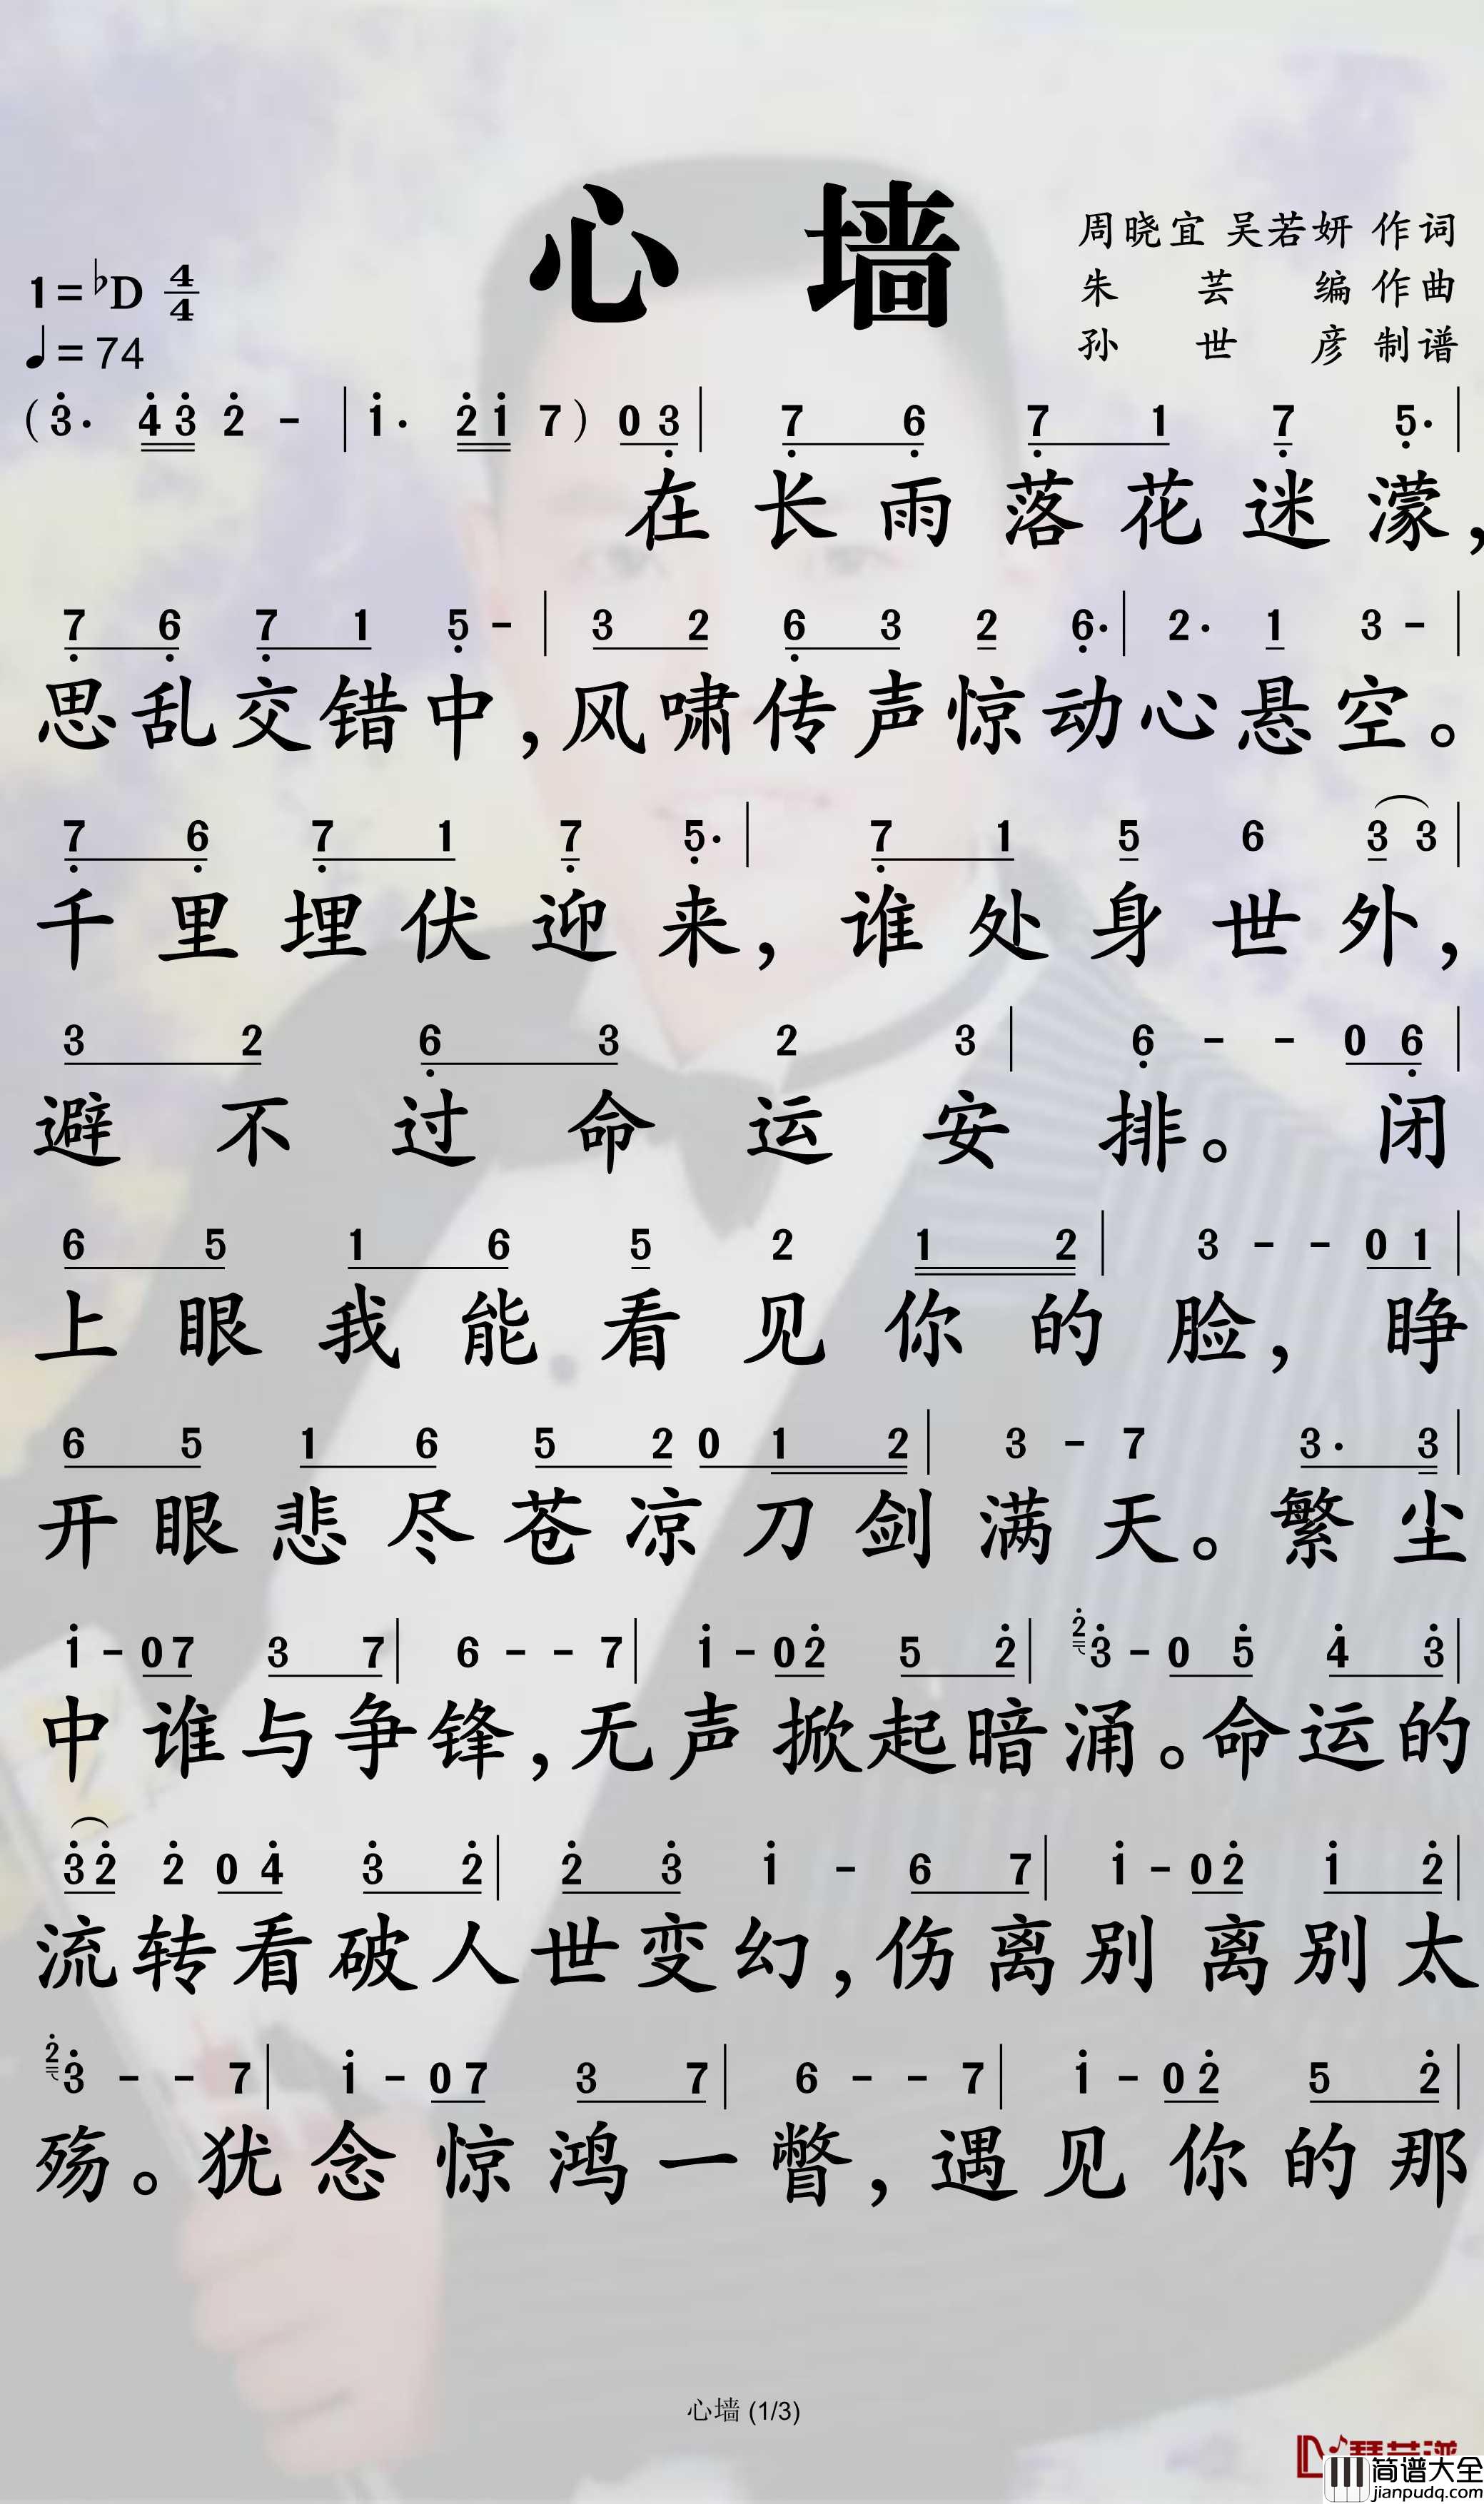 心 墙
周晓宜 吴若妍 作词
朱芸编 作曲
孙世彦 制谱
1=♭D 4/4
♩=74
(3. 43 2 - | 1. 21 7) 0 3 | 7 6 7 1 7 5. |
在长雨落花迷濛，
7 6 7 1 5 - | 3 2 6 3 2 6. | 2. 1 3 - |
思乱交错中，风啸传声惊动心悬空。
7 6 7 1 7 5. | 7 1 5 6 3 3 |
千里埋伏迎来，谁处身世外，
3 2 6 3 2 3 | 6 - - 0 6 |
避不过命运安排。闭
6 5 1 6 5 2 1 2 | 3 - - 0 1 |
上眼我能看见你的脸，睁
6 5 1 6 5 2 0 1 2 | 3 - 7 3. 3 |
开眼悲尽苍凉刀剑满天。繁尘
1 - 0 7 3 7 | 6 - - 7 | 1 - 0 2 5 2 | 2 3 - 0 5 4 3 |
中谁与争锋，无声掀起暗涌。命运的
3 2 2 0 4 3 2 | 2 3 1 - 6 7 | 1 - 0 2 1 2 |
流转看破人世变幻，伤离别离别太
2 3 - - 7 | 1 - 0 7 3 7 | 6 - - 7 | 1 - 0 2 5 2 |
殇。犹念惊鸿一瞥，遇见你的那
心墙 (1/3)
简谱大全
jianpudq.com